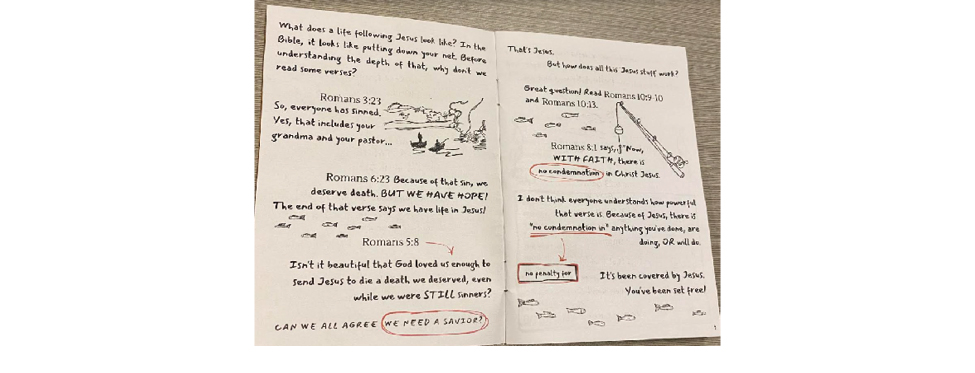 What does a life following Jesus look like? In the
Bible, it looks like putting down your net. Before
understanding the depth of that, why don't we
read some verses?
Romans 3:23
So, everyone has sinned.
Yes, that includes your
grandma and your pastor...
Romans 6:23 Because of that sin, we
deserve death. BUT WE HAVE HOPE!
The end of that verse says we have life in Jesus!
Romans 5:8
Isn't it beautiful that God loved us enough to
send Jesus to die a death we deserved, even
while we were STILL sinners?
CAN WE ALL AGREE WE NEED A SAVIOR?
That's Jesus.
But how does all this Jesus stuff work?
Great question! Read Romans 10:9-10
and Romans 10:13.
Romans 8:1 says, "Now,
WITH FAITH, there is
no condemnation in Christ Jesus.
I don't think everyone understands how powerful
that verse is. Because of Jesus, there is
"no condemnation in" anything you've done, are
doing, OR will do.
no penalty for
It's been covered by Jesus.
You've been set free!
1